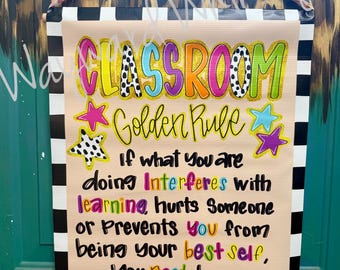 CLASSROOM
Golden Rule
If what you are
doing Interferes with
learning, hurts someone
or Prevents you from
being your best self,
you need